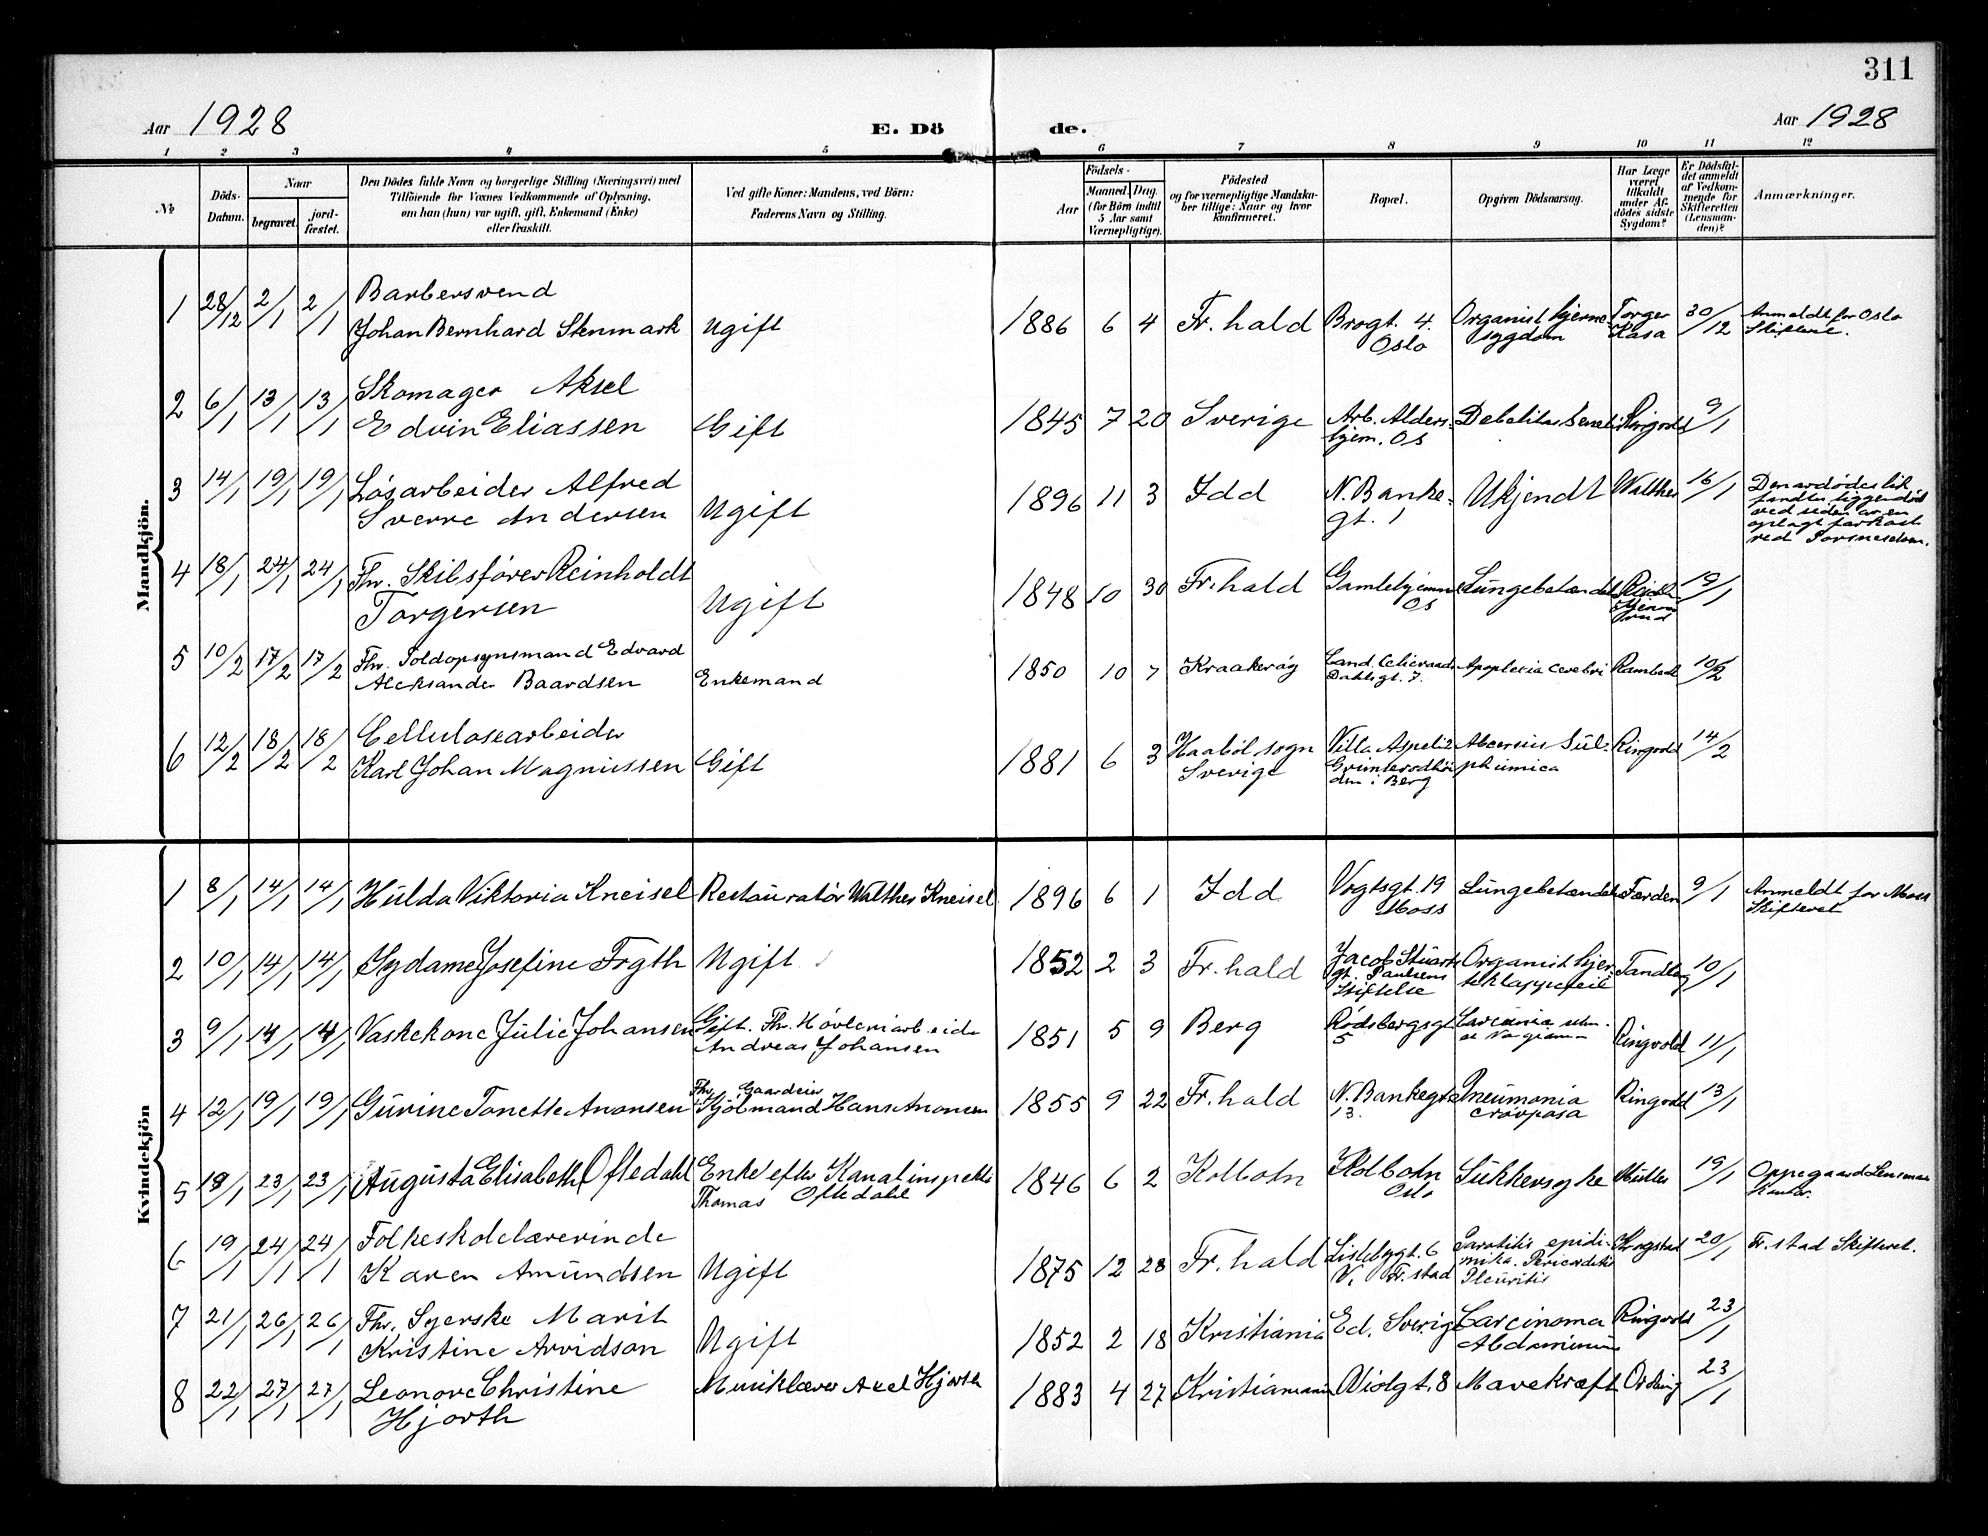 311
Aar 1928
E. Dö
de.
Aar 1928
1 2 3 4 5 6 7 8 9 10 11 12
№
Döds-
Datum.
Naar
begravet.
jord-
fæstet.
Den Dödes fulde Navn og borgerlige Stilling (Næringsvei) med
Tilföiende for Voxnes Vedkommende af Oplysning,
om han (hun) var ugift, gift, Enkemand (Enke)
eller fraskilt.
Ved gifte Koner: Mandens, ved Börn:
Faderens Navn og Stilling.
Födsels-
Aar
Maaned. Dag.
(for Börn indtil
5 Aar samt
Værnepligtige).
Födested
og for værnepligtige Mandska-
ber tillige: Naar og hvor
konfirmeret.
Bopæl.
Opgiven Dödsaarsag.
Har Læge
været
tilkaldt
under Af-
dödes sidste
Sygdom?
Er Dödsfal-
det anmeldt
af Vedkom-
mende for
Skifteretten
(Lensman-
den)?
Anmærkninger.
Mandkjön.
1 28/12 2/1 2/1 Barbersvend
Johan Bernhard Stenmark Ugift 1886 6 4 Fr.hald Brogt. 4.
Oslo Organist hjerne-
sygdom Torger
Kasa 30/12 Anmeldt for Oslo
Skifteret.
2 6/1 13/1 13/1 Skomager Aksel
Edvin Eliassen Gift 1845 7 20 Sverige Arb. Alders-
hjem. Os Debelitas Senelis Ringvold 9/1
3 14/1 19/1 19/1 Løsarbeider Alfred
Sverre Andersen Ugift 1896 11 3 Idd N. Banke-
gt. 1 Ukjendt Walther 16/1 Den avdødes lik
fandtes liggende
ved siden av en
oplagt farkost
ved
4 18/1 24/1 24/1 Fhv. Skibsfører Reinholdt
Torgersen Ugift 1848 10 30 Fr.hald Gamlehjemmet
Os Lungebetændelse 19/1
5 10/2 17/2 17/2 Fhv. Toldopsynsmand Edvard
Aleksander Baardsen Enkemand 1850 10 7 Kraakerøy
Dahlsgt. 7. Apoplexia cerebri Rambech 10/2
6 12/2 18/2 18/2 Cellulosearbeider
Karl Johan Magnussen Gift 1881 6 3 Haaböl sogn
Sverige Villa
i Berg Ringvold 14/2
Kvindekjön
1 8/1 14/1 14/1 Hulda Viktoria Kneisel Restauratør Walther Kneisel 1896 6 1 Idd Vogtsgt. 19
Moss Lungebetændelse Færden 9/1 Anmeldt for Moss
Skifteret
2 10/1 14/1 14/1 Sydame Josefine Frgth Ugift 1852 2 3 Fr.hald Jacob Stuarts
gt. Paulsens
Stiftelse Organist hjer-
teklappefeil Tandberg 10/1
3 9/1 14/1 14/1 Vaskekone Julie Johansen Gift. Fhv. Høvleriarbeider
Andreas Johansen 1851 5 9 Berg Rødsbergsgt.
5 Ringvold 11/1
4 12/1 19/1 19/1 Gurine Tonette Anonsen Fhv. Gaardeier
Sjömand Hans Anonsen 1855 9 22 Fr.hald N. Bankegt.
13. Pneumonia
crouposa Ringvold 13/1
5 19/1 23/1 23/1 Augusta Elisabeth Oftedahl Enke efter Kanalinspektør
Thomas Oftedahl 1846 6 2 Kolbotn Kolbotn
Oslo Sukkersyke Müller 19/1 Oppegaard Lensmans
Kontor.
6 19/1 24/1 24/1 Folkeskolelærerinde
Karen Amundsen Ugift 1875 12 28 Fr.hald Lislebygt. 6
V. Fr.stad Parotitis epide-
mika. Pericarditis
Pleuritis Krogstad 20/1 Fr.stad Skifteret.
7 21/1 26/1 26/1 Fhv. Syerske Marit
Kristine Arvidson Ugift 1852 2 18 Kristiania Ed, Sverige Carcinoma
Abdominum Ringvold 23/1
8 22/1 27/1 27/1 Leonore Christine
Hjorth Musiklærer Axel Hjorth 1883 4 27 Kristiania Violgt. 8 Mavekræft Ording 23/1